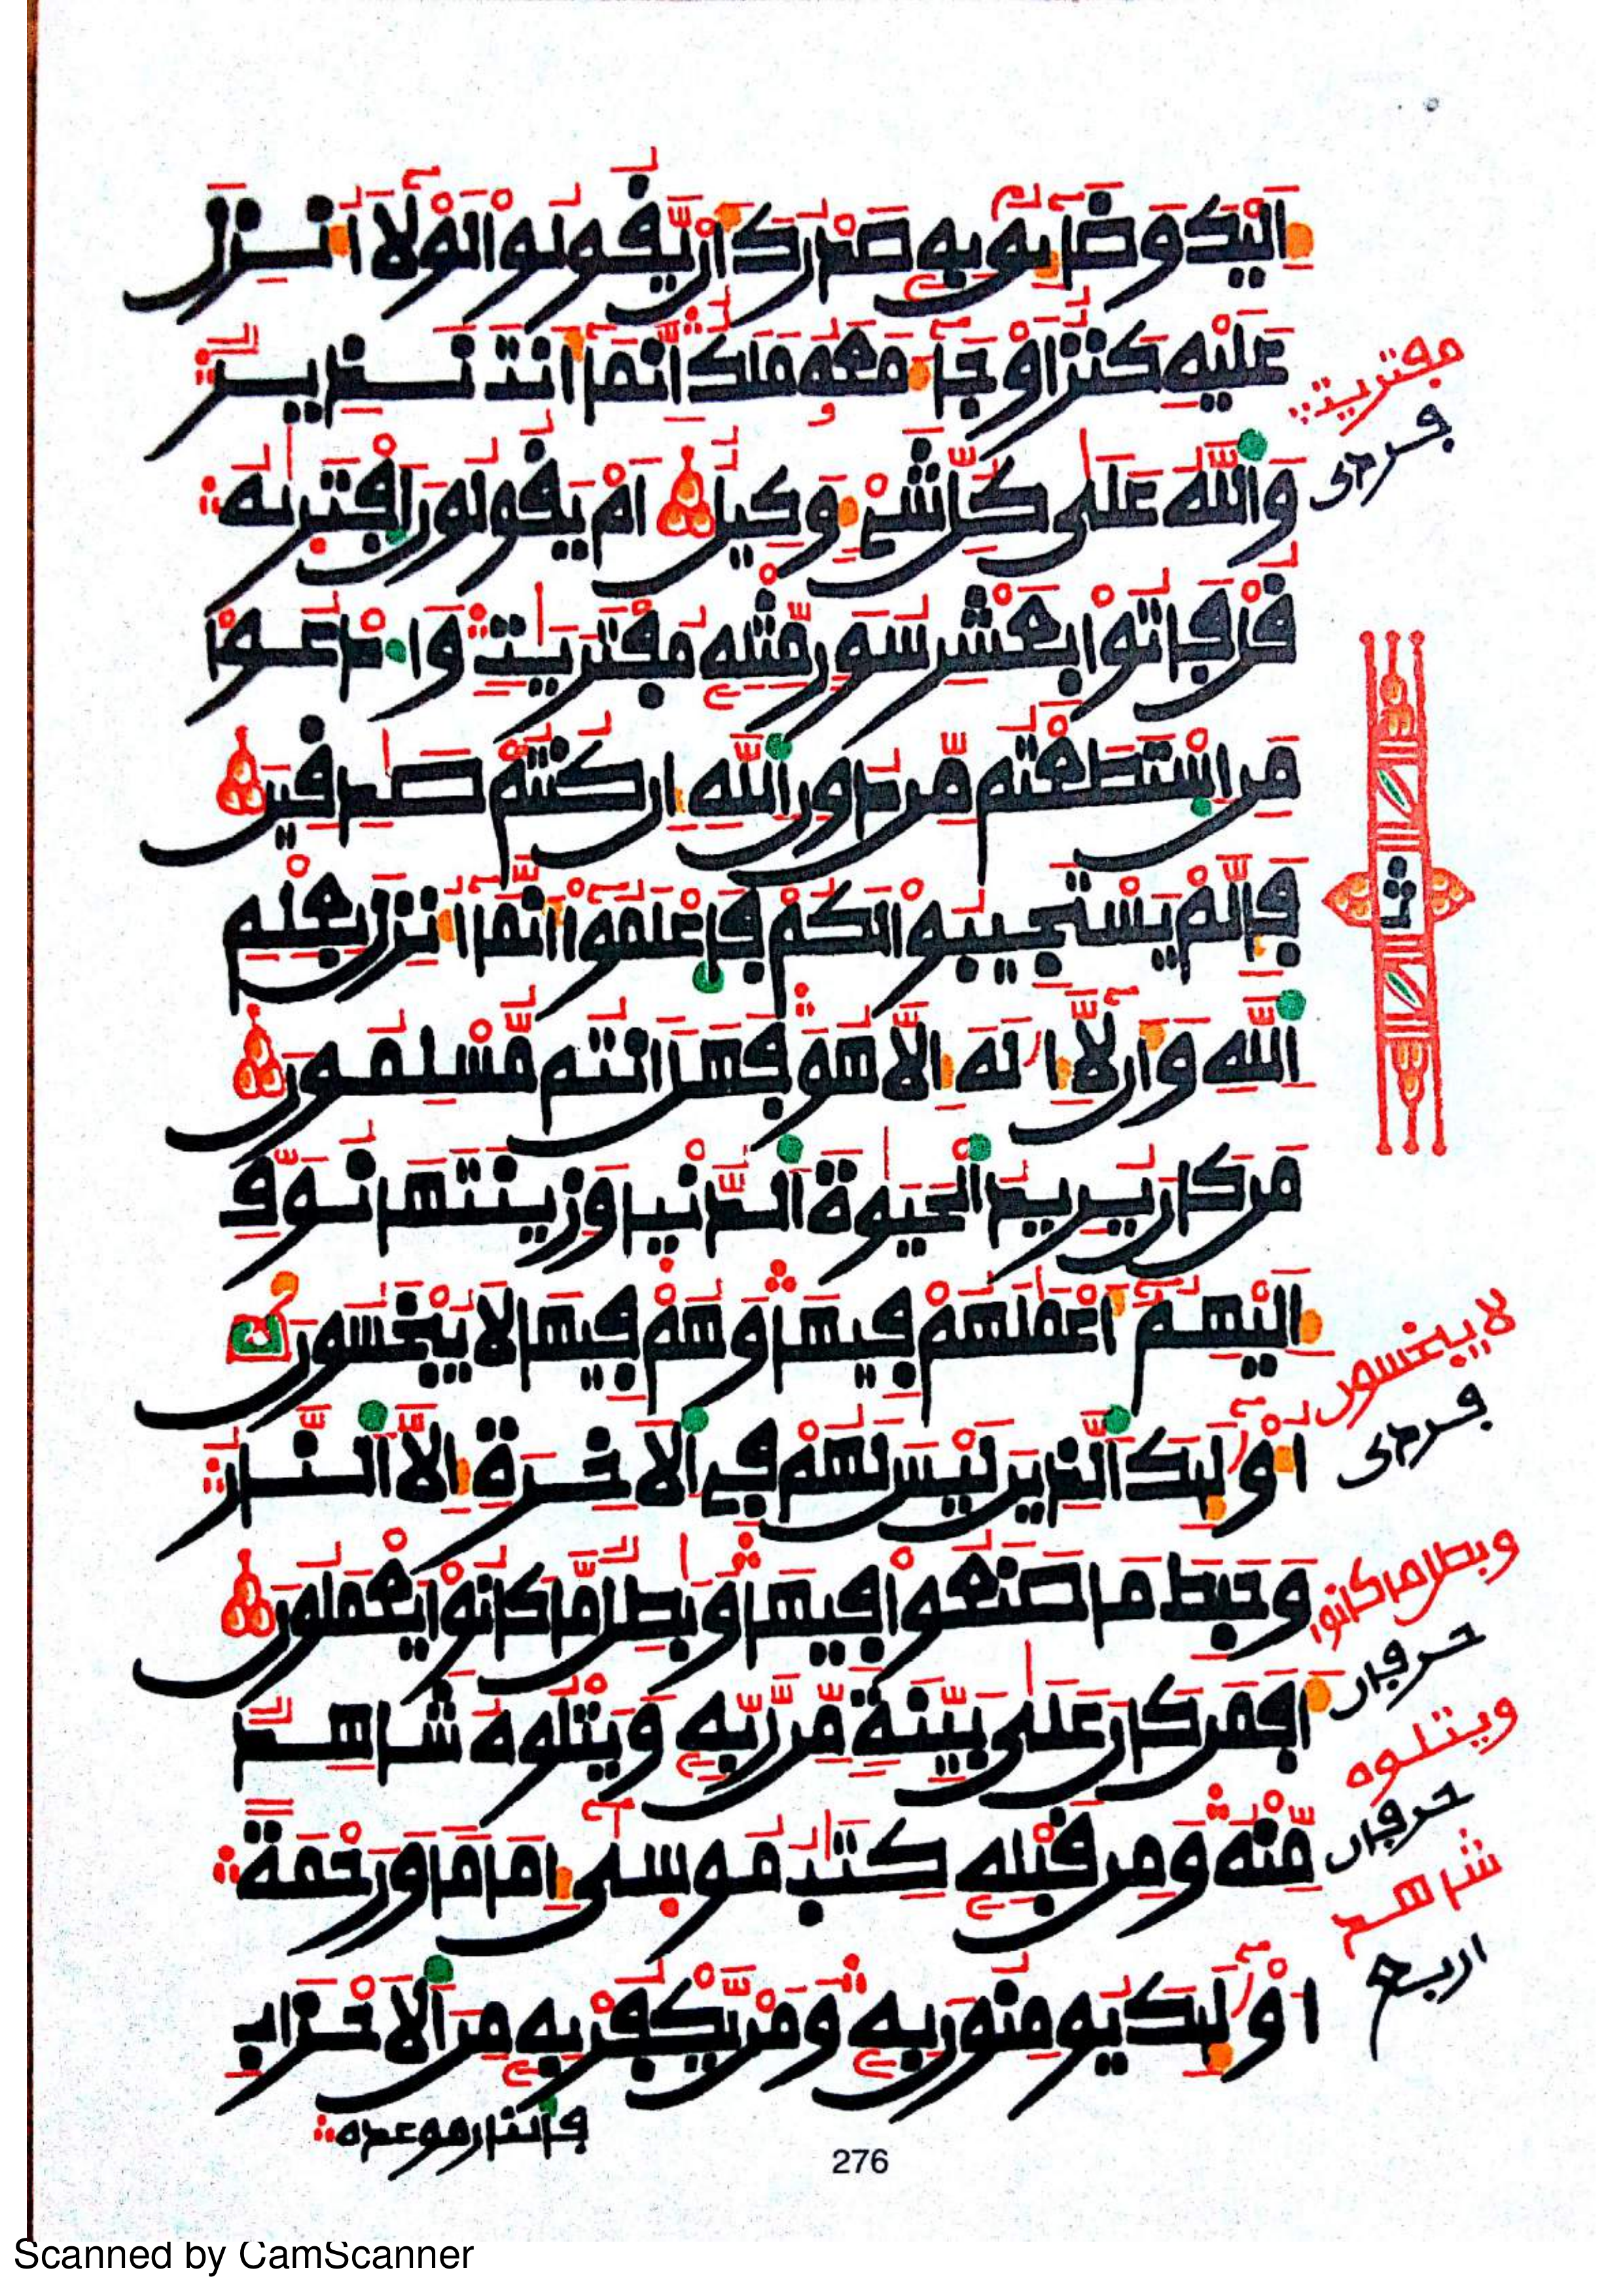 إِلَيْكَ وَضَآئِقٌۢ بِهِۦ صَدْرُكَ أَنْ يَّقُولُواْ لَوْلَآ أُنزِلَ
عَلَيْهِ كَنزٌ أَوْ جَآءَ مَعَهُۥ مَلَكٌ اِنَّمَآ أَنتَ نَذِيرٌ
وَاللَّهُ عَلَىٰ كُلِّ شَيْءٍ وَكِيلٌ اَمْ يَقُولُونَ اَفْتَرَىٰهُ
قُلْ فَاتُواْ بِعَشْرِ سُوَرٍ مِّثْلِهِۦ مُفْتَرَيَٰتٍ وَادْعُواْ
مَنِ اسْتَطَعْتُم مِّن دُونِ اللَّهِ إِن كُنتُمْ صَٰدِقِينَ
فَإِلَّمْ يَسْتَجِيبُواْ لَكُمْ فَاعْلَمُواْ أَنَّمَآ أُنزِلَ بِعِلْمِ
اللَّهِ وَأَن لَّآ إِلَٰهَ إِلَّا هُوَ فَهَلَ اَنتُم مُّسْلِمُونَ
مَن كَانَ يُرِيدُ الْحَيَوٰةَ الدُّنْيَا وَزِينَتَهَا نُوَفِّ
إِلَيْهِمُۥٓ أَعْمَٰلَهُمْ فِيهَا وَهُمْ فِيهَا لَا يُبْخَسُونَ
أُوْلَٰٓئِكَ الَّذِينَ لَيْسَ لَهُمْ فِي الْأَخِرَةِ إِلَّا النَّارُ
وَحَبِطَ مَا صَنَعُواْ فِيهَا وَبَٰطِلٌ مَّا كَانُواْ يَعْمَلُونَ
أَفَمَن كَانَ عَلَىٰ بَيِّنَةٍ مِّن رَّبِّهِۦ وَيَتْلُوهُ شَاهِدٌ
مِّنْهُ وَمِن قَبْلِهِۦ كِتَٰبُ مُوسَىٰٓ إِمَامًا وَرَحْمَةً
أُوْلَٰٓئِكَ يُومِنُونَ بِهِۦ وَمَنْ يَّكْفُرْ بِهِۦ مِنَ الْأَحْزَابِ
فالنار موعده
مفتريت
فرءى
ث
لا يبخسون
فرءى
وبطل ما كانوا
حرفان
ويتلوه
حرفان
شاهد
اربع
276
Scanned by CamScanner